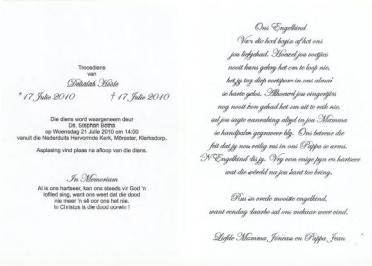 Troosdiens
van
Delialah Hoste
* 17 Julie 2010 † 17 Julie 2010
Die diens word waargeneem deur
Ds. Stephan Botha
op Woensdag 21 Julie 2010 om 14:00
vanuit die Nederduits Hervormde Kerk, Môrester, Klerksdorp.
Asplasing vind plaas na afloop van die diens.
In Memoriam
Al is ons hartseer, kan ons steeds vir God 'n
loflied sing, want ons weet dat die dood
nie meer 'n sê oor ons het nie.
In Christus is die dood oorwin !
Ons Engelkind
Vær die hoel begin af het ons
jou liefgehad. Hoewel jou voetjies
nooit kans gekry het om te loop nie,
het jy tog diep voetspore in ons almal
se harte gelos. Alhoewel jou vingertjies
nog nooit kon gehad het om uit te reik nie,
sal jou sagte aanraking altyd in jou Mamma
se handpalm gegraveer bly. Ons betreur die
feit dat jy nou veilig rus in ons Pappa se arms.
'N Engelkind dis jy. Vry van enige pyn en hartseer
wat die wêreld na jou kant toe bring.
Rus in vrede mooiste engelkind,
want eendag daarbo sal ons mekaar weer vind.
Liefde Mamma, en Pappa Jean